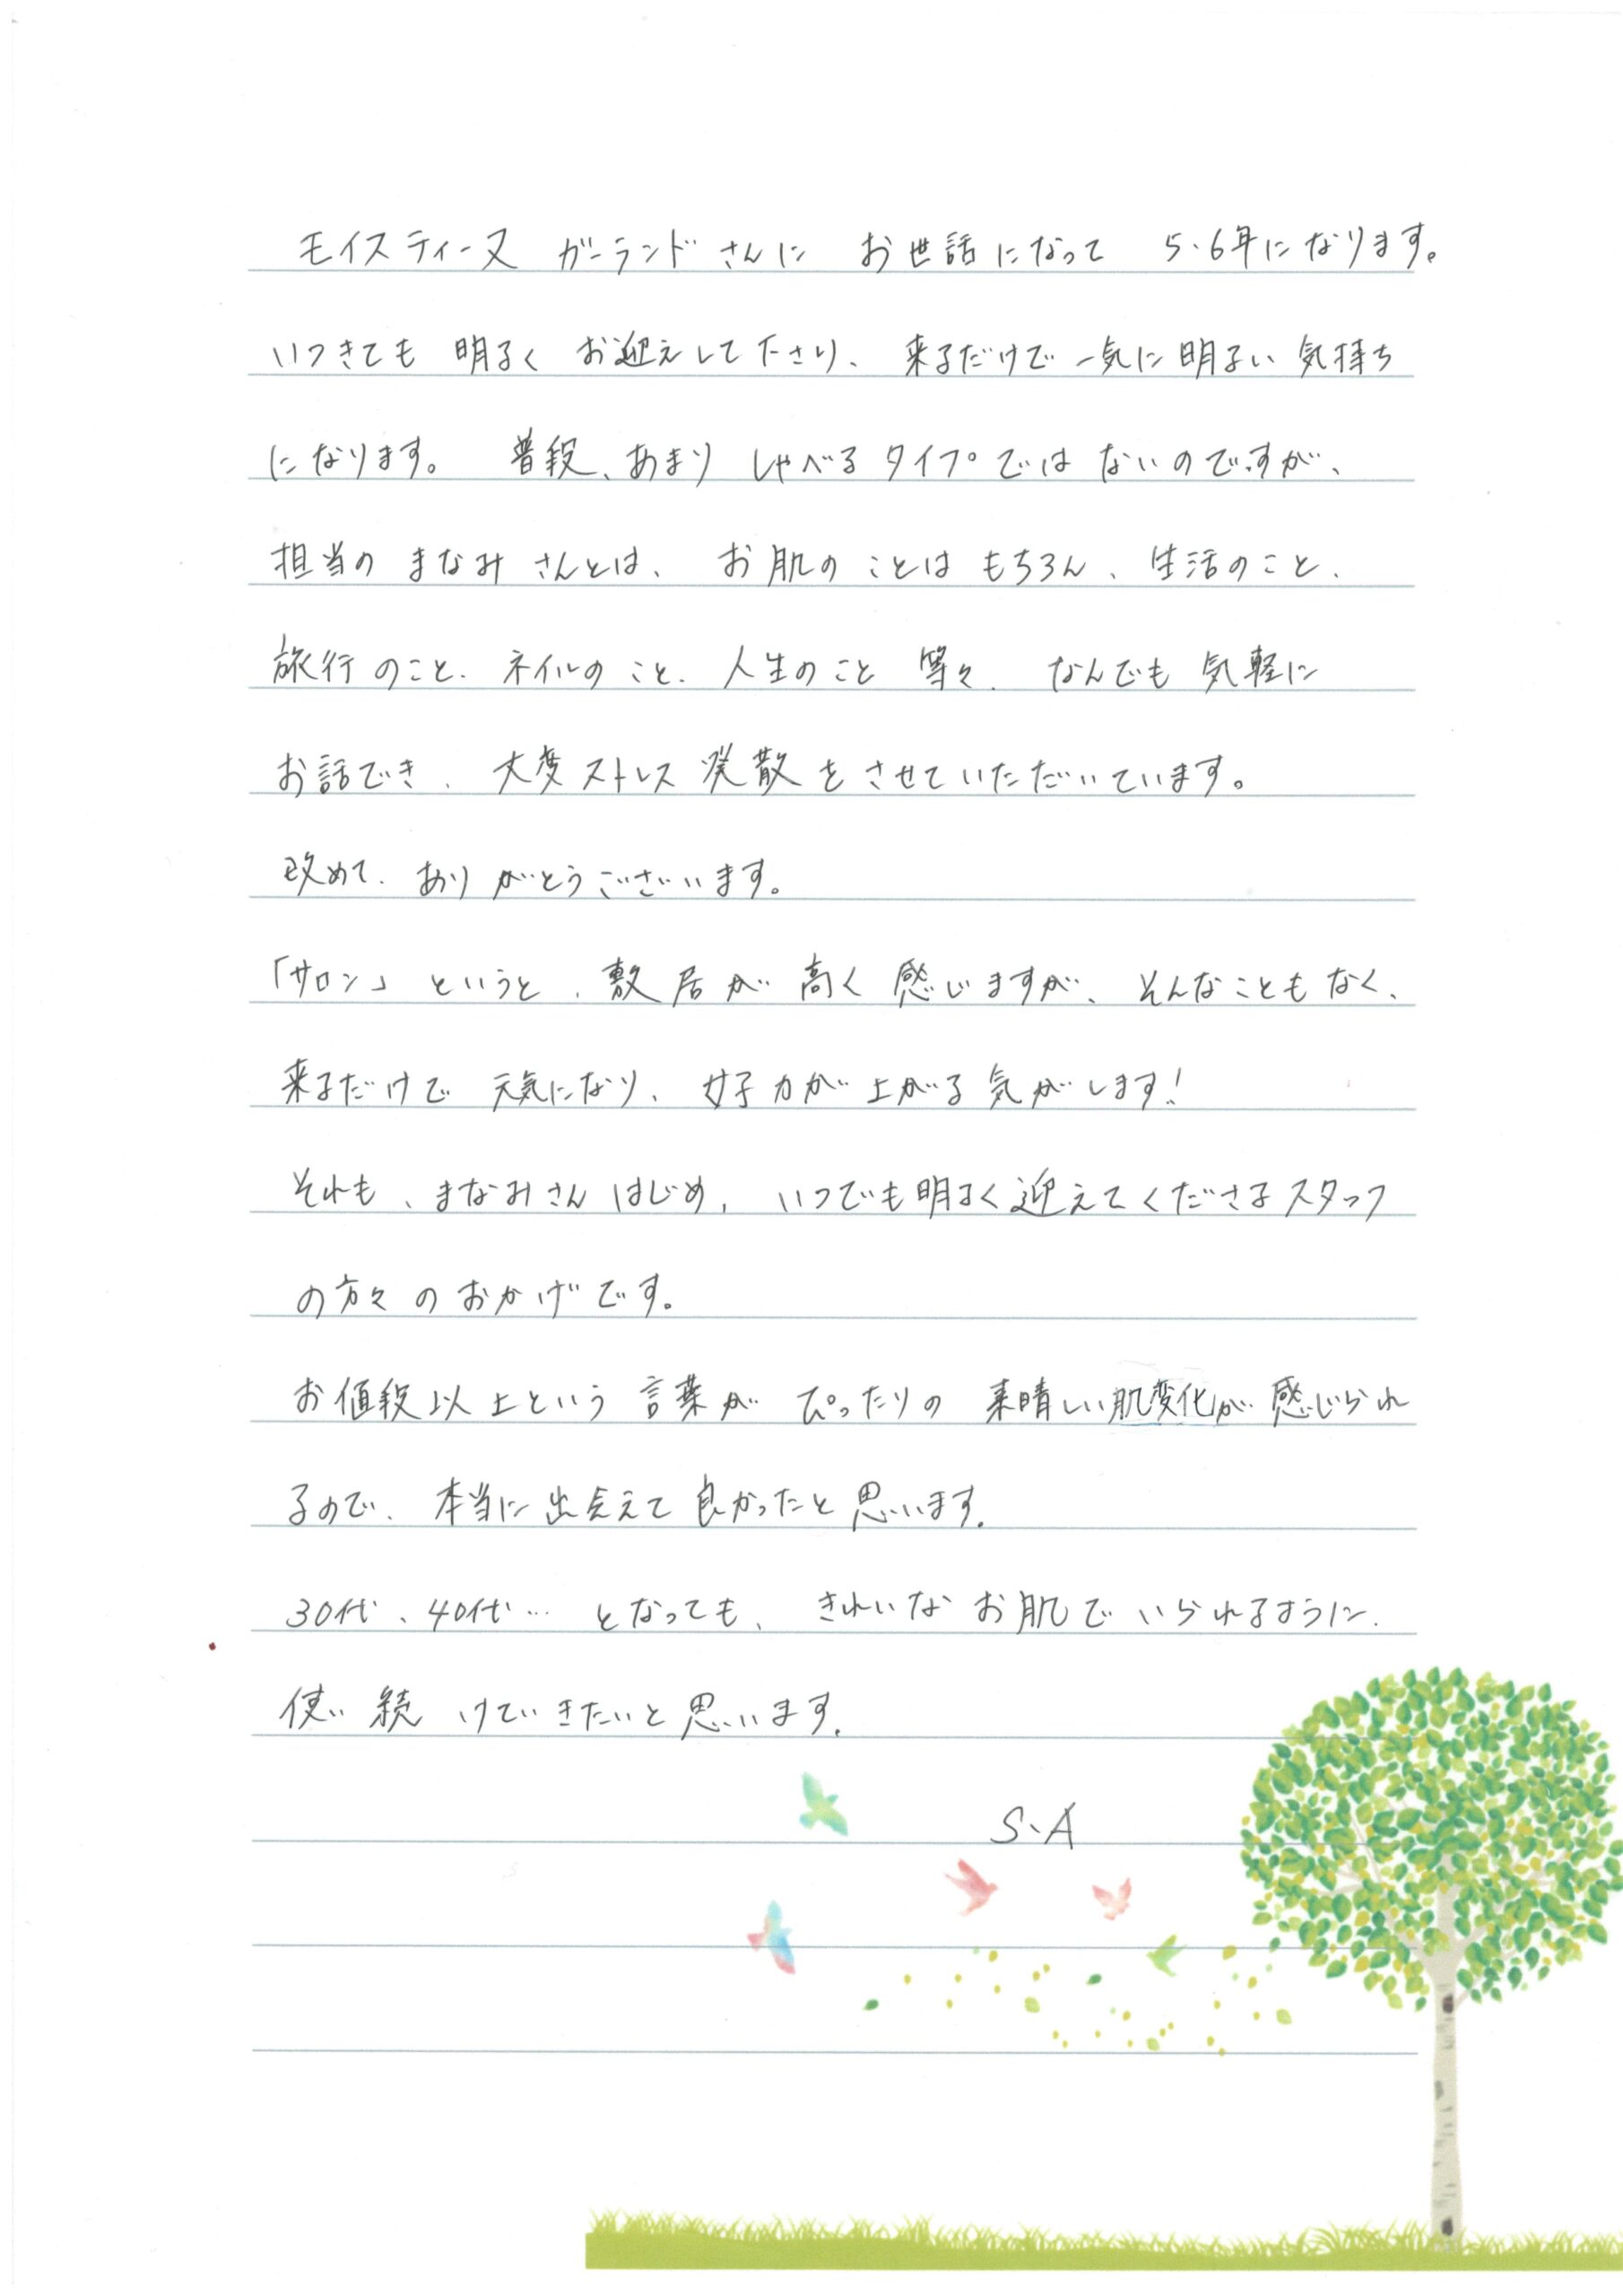 モイスティーヌ ガーランドさんに お世話になって 5、6年になります。
いつきても 明るく お迎えして下さり、来るだけで一気に明るい気持ち
になります。 普段、あまり しゃべるタイプでは ないのですが、
担当の まなみさんとは、 お肌のことは もちろん、生活のこと、
旅行のこと、ネイルのこと、人生のこと 等々、 なんでも 気軽に
お話でき、大変ストレス発散をさせていただいています。
改めて、ありがとうございます。
「サロン」 というと、敷居が 高く 感じますが、そんなこともなく、
来るだけで 元気になり、女子力が上がる気がします!
それも、まなみさんはじめ、いつでも明るく迎えてくださるスタッフ
の方々のおかげです。
お値段以上という 言葉が ぴったりの 素晴しい肌変化が感じられ
るので、本当に出会えて良かったと思います。
30代、40代… となっても、きれいな お肌で いられるように、
使い続けていきたいと思います。
S、A